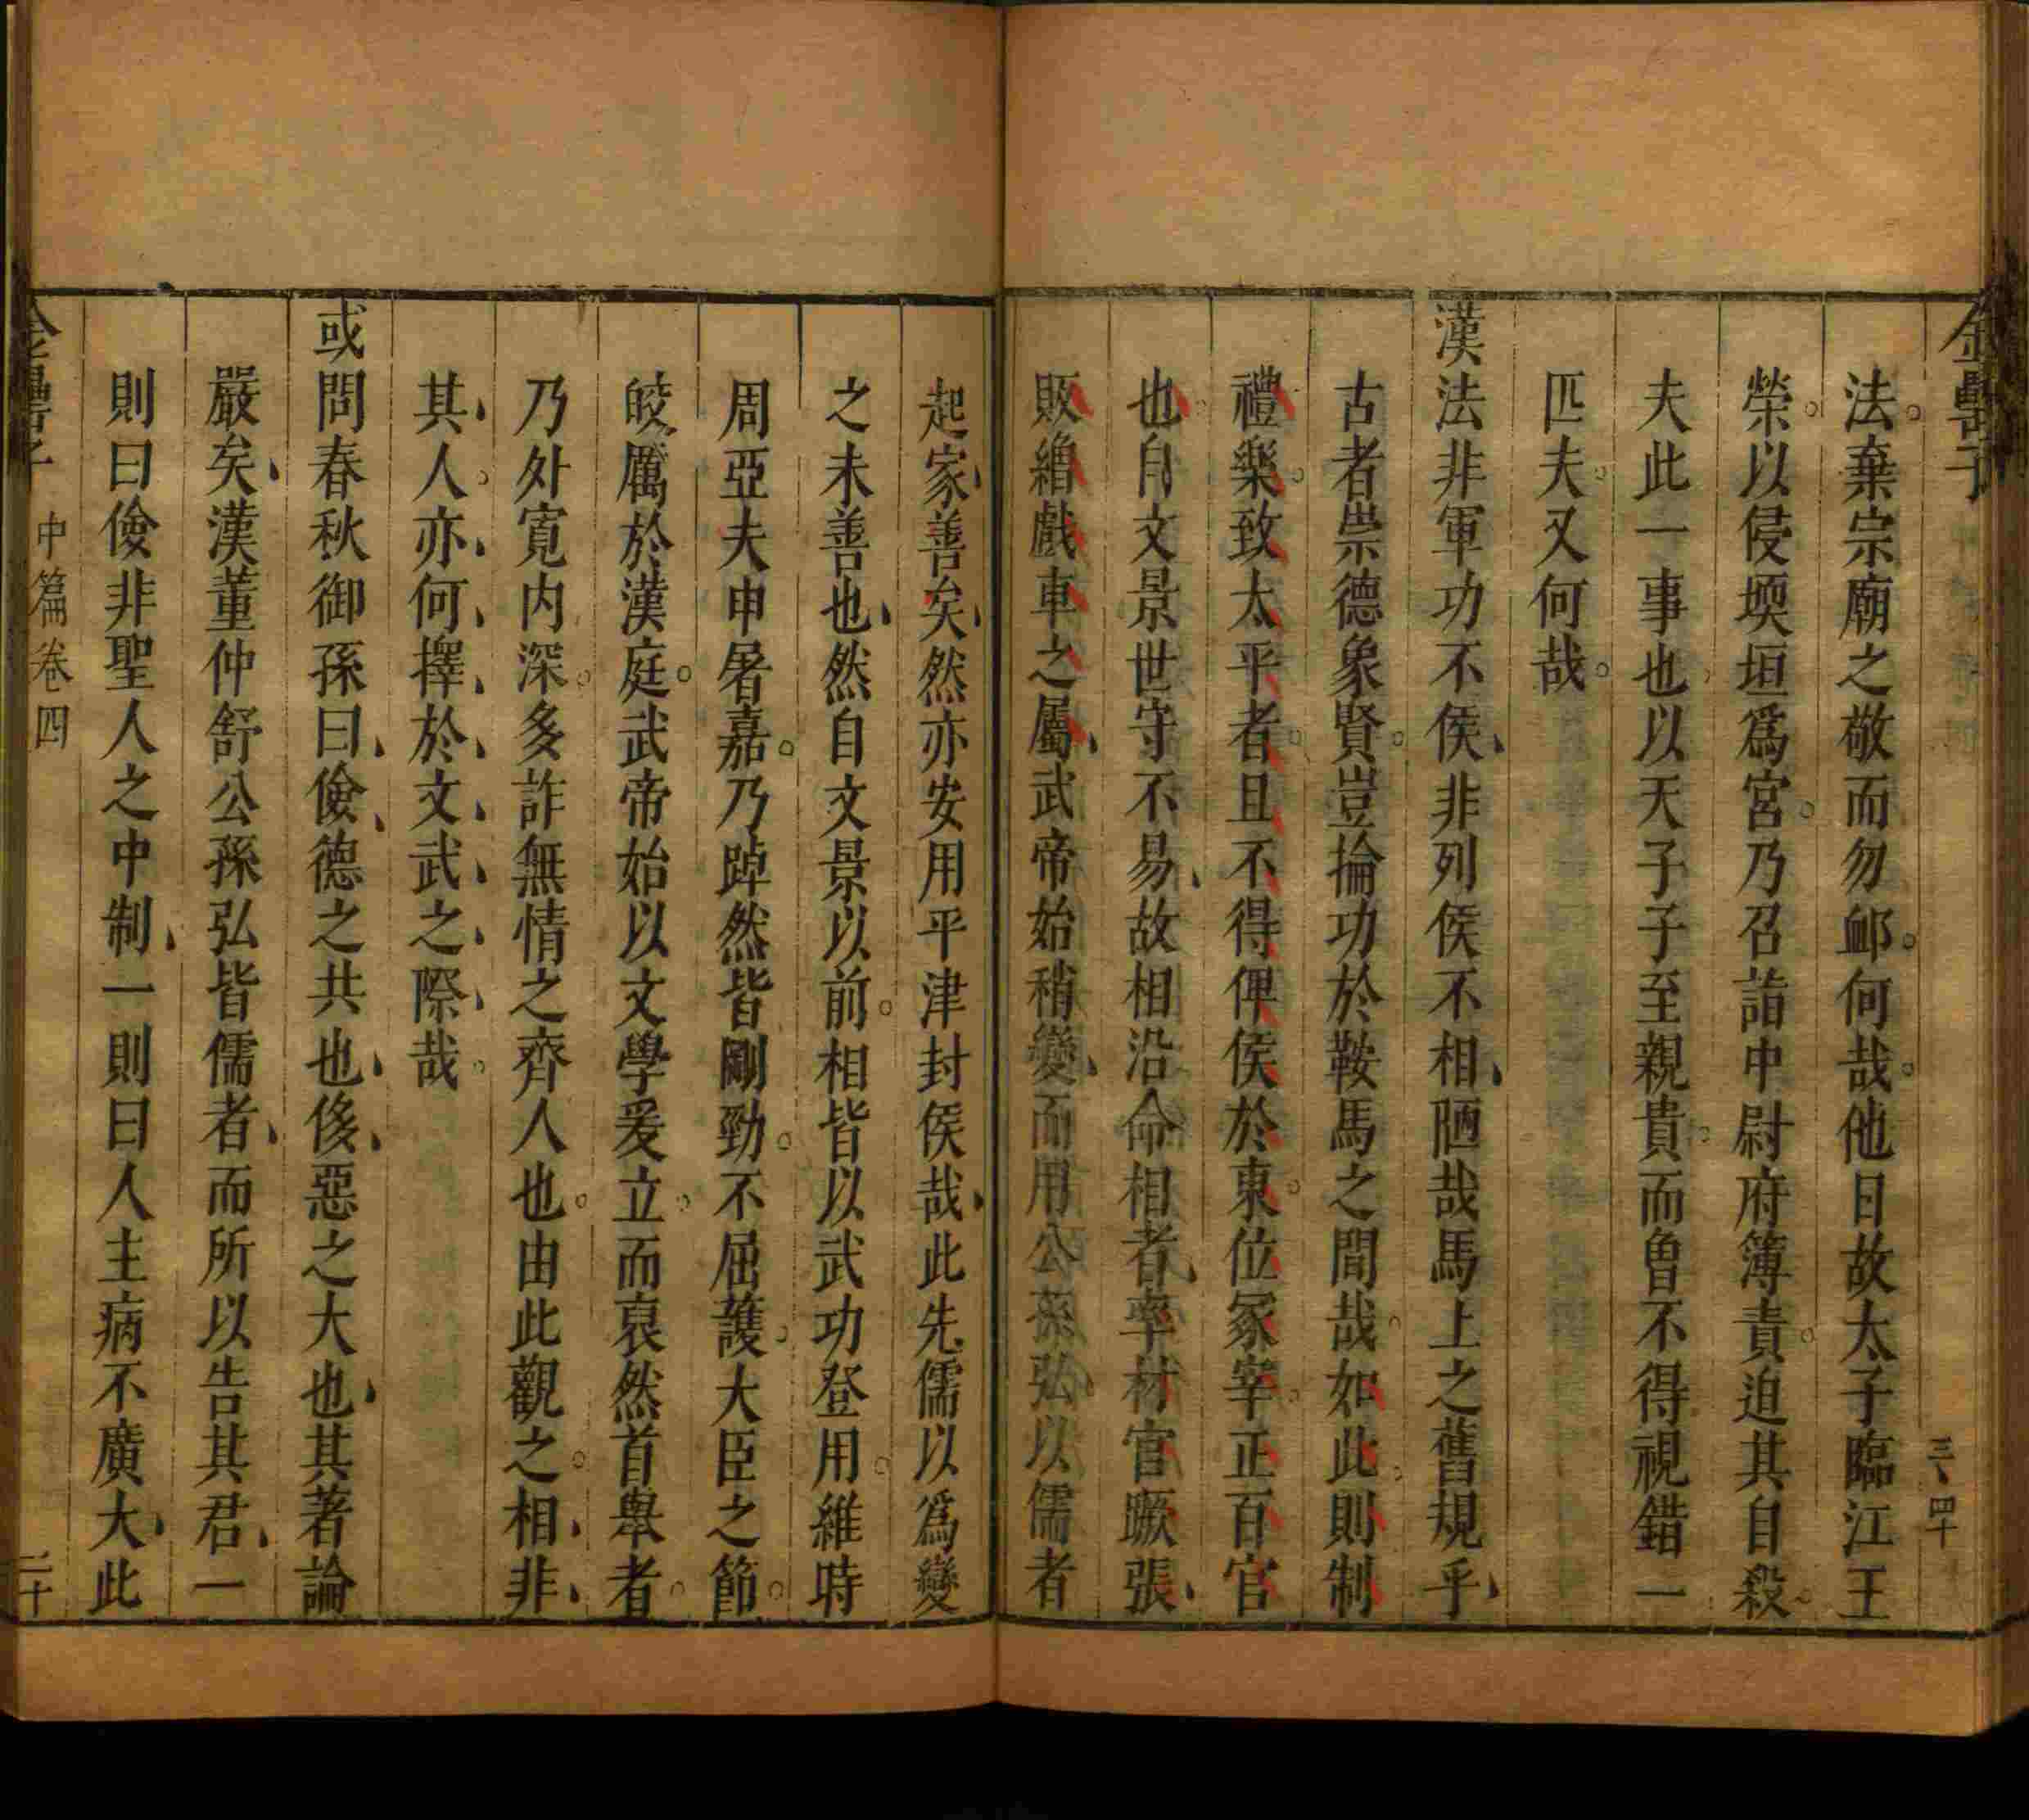 金罍子
三、四十
法棄宗廟之敬而勿䘏何哉他日故太子臨江王
榮以侵堧垣爲宮乃召詣中尉府簿責迫其自殺
夫此一事也以天子子至親貴而曾不得視錯一
匹夫又何哉
漢法非軍功不侯非列侯不相陋哉馬上之舊規乎
古者崇德象賢豈掄功於鞍馬之間哉如此則制
禮樂致太平者且不得俾侯於東位冢宰正百官
也自文景世守不易故相沿命相者率材官蹶張
販繒戲車之屬武帝始稍變而用公孫弘以儒者
起家善矣然亦安用平津封侯哉此先儒以爲變
之未善也然自文景以前相皆以武功登用維時
周亞夫申屠嘉乃踔然皆剛勁不屈頀大臣之節
皎厲於漢庭武帝始以文學爰立而裒然首舉者
乃外寬内深多詐無情之齊人也由此觀之相非
其人亦何擇於文武之際哉
或問春秋御孫曰儉德之共也侈惡之大也其著論
嚴矣漢董仲舒公孫弘皆儒者而所以告其君一
則曰儉非聖人之中制一則曰人主病不廣大此
金罍子
中篇卷四
二十